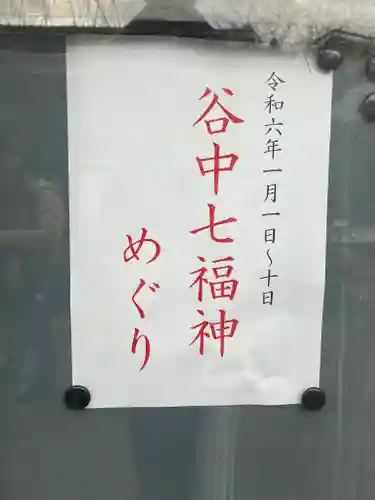 令和六年一月一日～十日
谷中七福神
めぐり